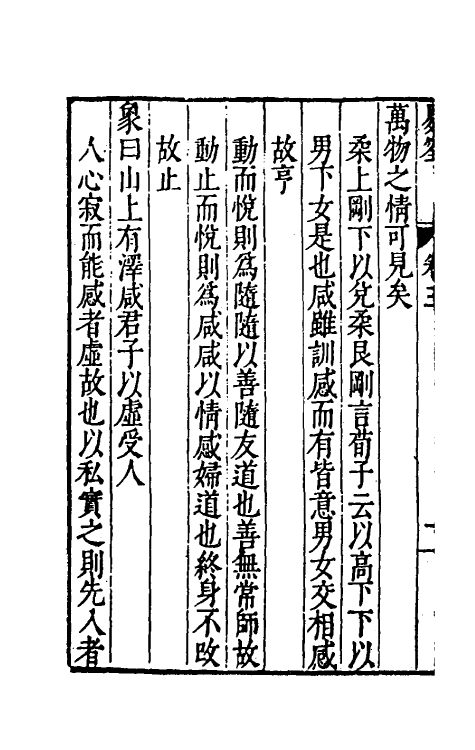 萬物之情可見矣
柔上剛下以兌柔艮剛言荀子云以高下下以
男下女是也咸雖訓感而有皆意男女交相感
故亨
動而悅則為隨隨以善隨友道也善無常師故
動止而悅則為咸咸以情感婦道也終身不改
故止
象曰山上有澤咸君子以虛受人
人心寂而能感者虛故也以私實之則先入者